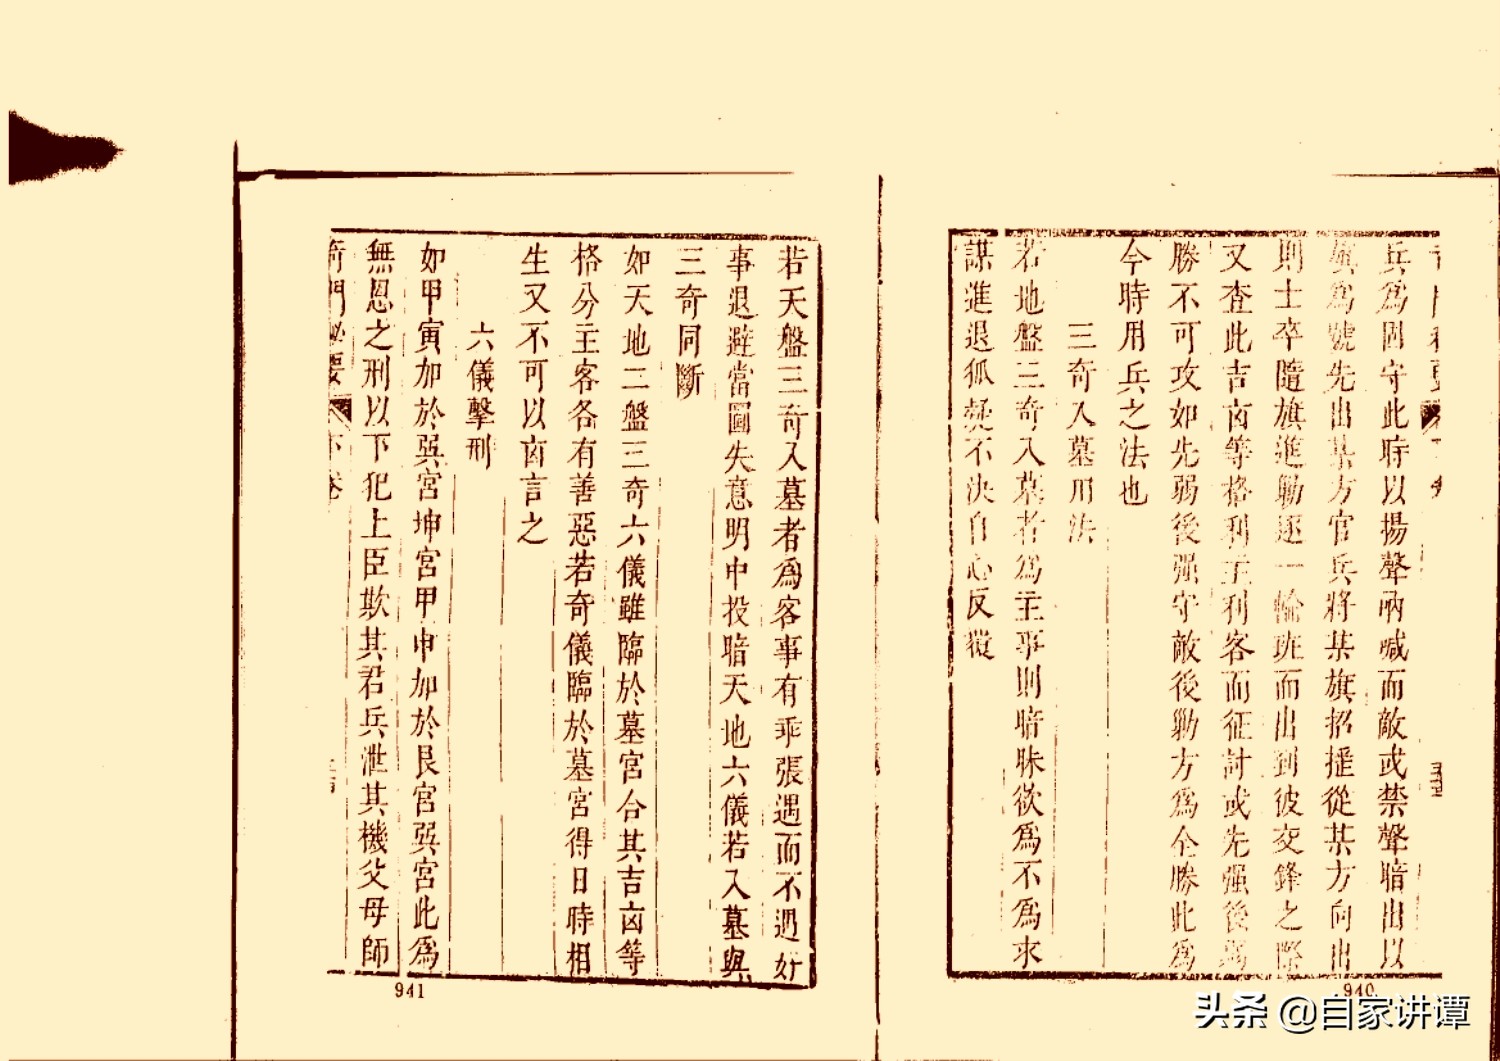 兵爲固守此時以揚聲吶喊而敵或禁聲暗出以
旗爲號先出某方官兵將某旗招搖從某方向出
則士卒隨旗進勦逐一輪班而出到彼交鋒之際
又查此吉凶等格利主利客而征討或先强後弱
勝不可攻如先弱後强守敵後勦方爲全勝此爲
今時用兵之法也
三奇入墓用法
若地盤三奇入墓者爲主事則暗昧欲爲不爲求
謀進退狐疑不決自心反覆
940
若天盤三奇入墓者爲客事有乖張遇而不遇好
事退避當圖失意明中投暗天地六儀若入墓與
三奇同斷
如天地二盤三奇六儀雖臨於墓宮合其吉凶等
格分主客各有善惡若奇儀臨於墓宮得日時相
生又不可以凶言之
六儀擊刑
如甲寅加於巽宮坤宮甲申加於艮宮巽宮此爲
無恩之刑以下犯上臣欺其君兵泄其機父母師
奇門秘要 下卷
941
头条 @自家讲谭